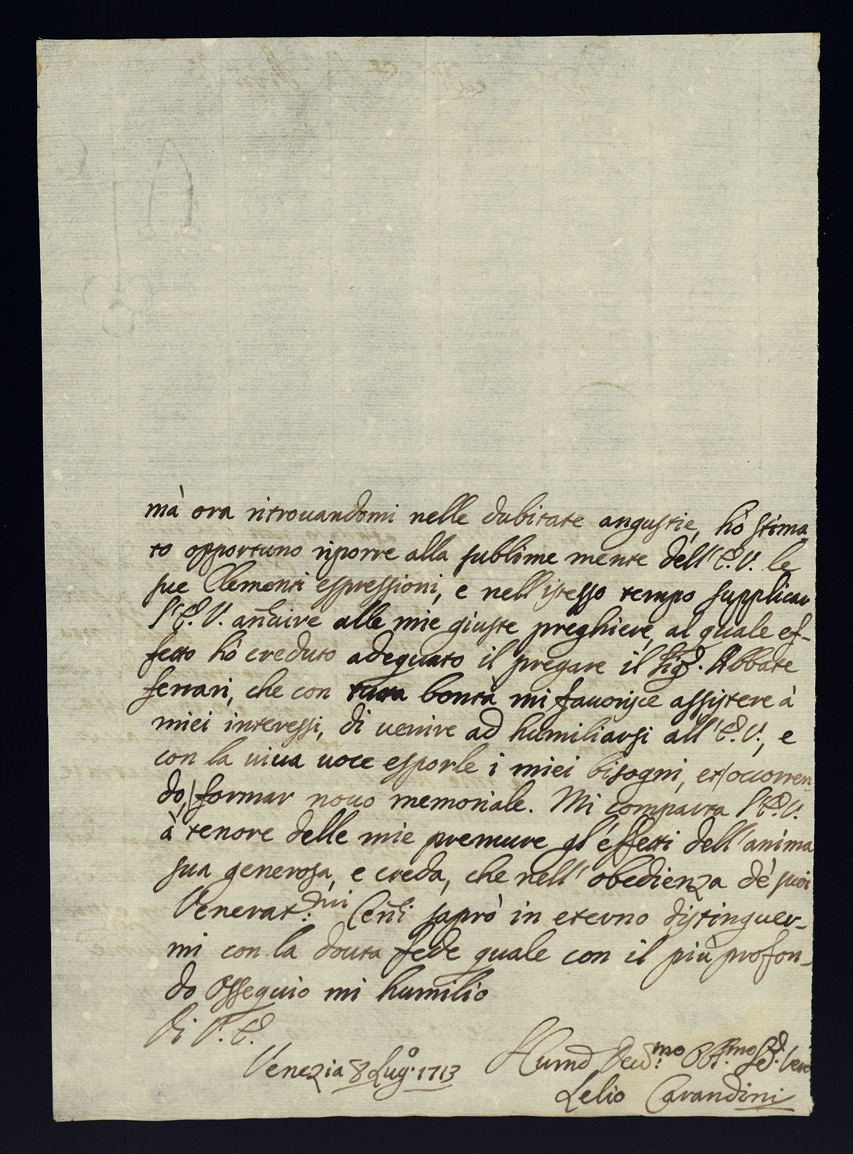 mà ora ritrouandomi nelle dubitate angustie, hò stima
to opportuno riporre alla sublime mente dell'E.V. le
sue Clementi espressioni, e nell'istesso tempo supplicar
l'E.V. añuire alle mie giuste preghiere, al quale ef-
fetto hò creduto adeguato il pregare il Sigr. Abbate
ferrari, che con tutta bontà mi fauorisce assistere à
miei interessi, di uenire ad humiliarsi all'E.V., e
con la uiua uoce esporle i miei bisogni, et occorren
do, formar nouo memoriale. Mi compartа l'E.V.
à tenore delle mie premure gl'effetti dell'anima
sua generosa, e creda, che nell'obedienza de' suoi
Venerat.mi Ceñi saprò in eterno distinguer-
mi con la douta fede quale con il più profon-
do ossequio mi humilio
Di V.E.
Venezia 8 Lugo. 1713 Humo Deuo.mo Obl.mo Sed.
Lelio Cavandini